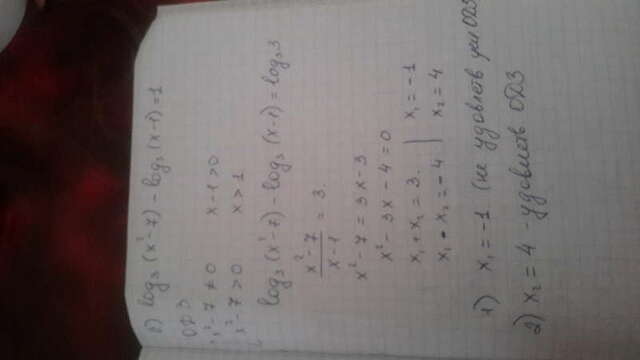 б) log₃(x²-7) - log₃(x-1) = 1
ОДЗ
x²-7 ≠ 0 x-1 > 0
x²-7 > 0 x > 1
log₃(x²-7) - log₃(x-1) = log₃3
x²-7 / x-1 = 3.
x²-7 = 3x-3
x²-3x-4 = 0
x₁ + x₂ = 3. | x₁ = -1
x₁ • x₂ = -4 | x₂ = 4
1) x₁ = -1 (не удовлетв усл ОДЗ
2) x₂ = 4 - удовлетв ОДЗ